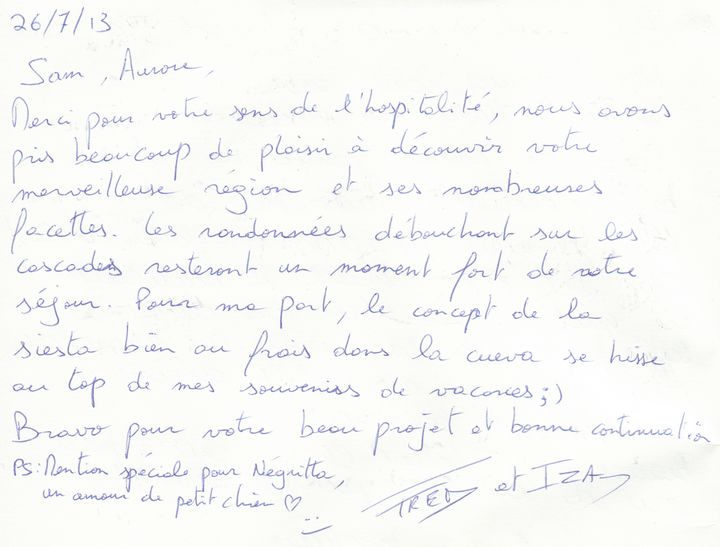 26/7/13
Sam, Aurore,
Merci pour votre sens de l'hospitalité, nous avons
pris beaucoup de plaisir à découvrir votre
merveilleuse région et ses nombreuses
facettes. Les randonnées débouchant sur les
cascades resteront un moment fort de notre
séjour. Pour ma part, le concept de la
siesta bien au frais dans la cueva se hisse
au top de mes souvenirs de vacances ;)
Bravo pour votre beau projet et bonne continuation
PS: Mention spéciale pour Négritta,
un amour de petit chien ♡ :)
FRED et IZA